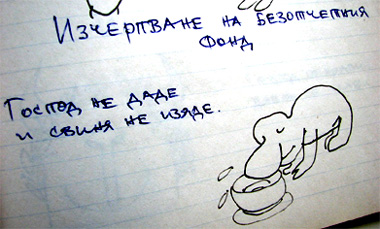 Изчерпване на безотчетния
фонд
Господ не даде
и свиня не изяде.